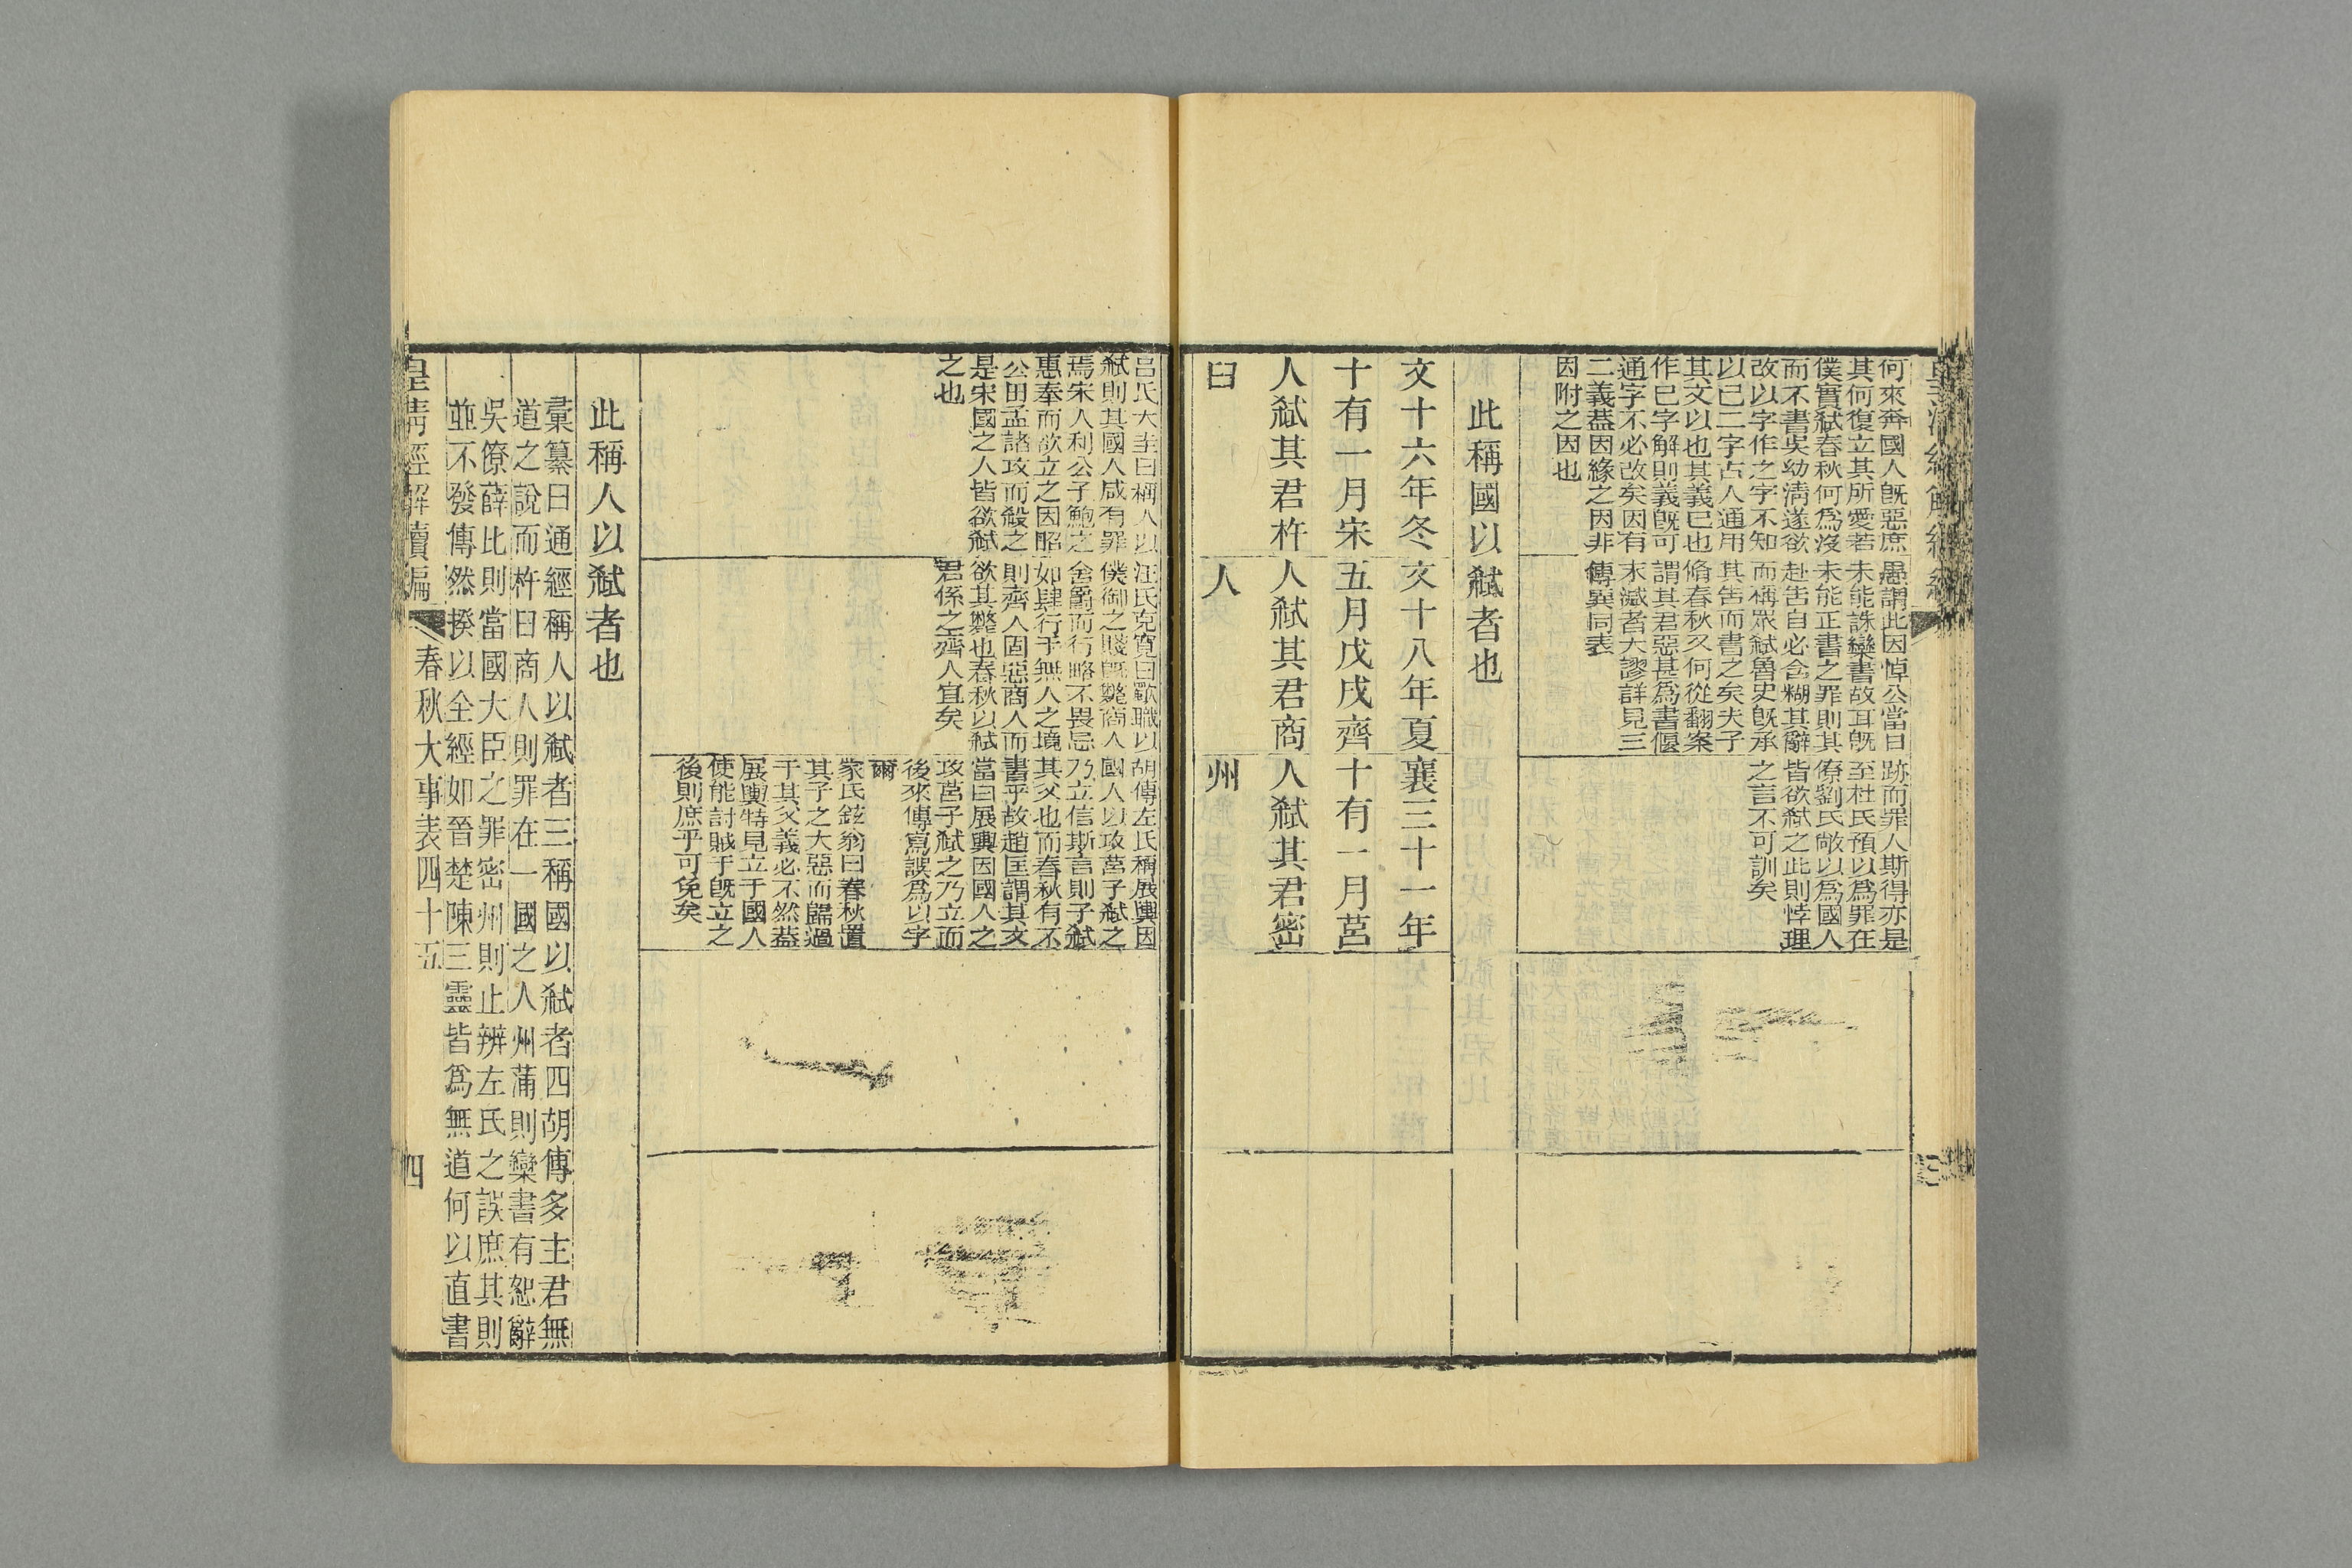 何來奔國人旣惡庶
其何復立其所愛若
僕實弑春秋何爲沒
而不書吳幼淸遂欲
改以字作之字不知
以已二字古人通用
其文以也其義已也
作已字解則義旣可
通字不必改矣因有
二義葢因緣之因非
因附之因也
愚謂此因悼公當日
未能誅欒書故耳旣
未能正書之罪則其
赴吿自必含糊其辭
而稱眾弑魯史旣承
其吿而書之矣夫子
脩春秋又何從翻案
謂其君惡甚爲書偃
末減者大謬詳見三
傳異同表
跡而罪人斯得亦是
至杜氏預以爲罪在
僚劉氏敞以爲國人
皆欲弑之此則悖理
之言不可訓矣
此稱國以弑者也
文十六年冬
十有一月宋
人弑其君杵
臼
文十八年夏
五月戊戌齊
人弑其君商
人
襄三十一年
十有一月莒
人弑其君密
州
呂氏大圭曰稱人以
弑則其國人咸有罪
焉宋人利公子鮑之
惠奉而欲立之因昭
公田孟諸攻而殺之
是宋國之人皆欲弑
之也
汪氏克寬曰歜職以
僕御之賤旣斃商人
舍爵而行略不畏忌
如肆行于無人之境
則齊人固惡商人而
欲其斃也春秋以弑
君係之齊人宜矣
胡傳左氏稱展輿因
國人以攻莒子弑之
乃立信斯言則子弑
其父也而春秋有不
書乎故趙匡謂其文
當曰展輿因國人之
攻莒子弑之乃立而
後來傳寫誤爲以字
爾
家氏鉉翁曰春秋置
其子之大惡而歸過
于其父義必不然葢
展輿特見立于國人
使能討賊于旣立之
後則庶乎可免矣
此稱人以弑者也
彙纂曰通經稱人以弑者三稱國以弑者四胡傳多主君無
道之說而杵臼商人則罪在一國之人州蒲則欒書有恕辭
吳僚薛比則當國大臣之罪密州則止辨左氏之誤庶其則
並不發傳然揆以全經如晉楚陳三靈皆爲無道何以直書
皇淸經解續編
春秋大事表四十五
四